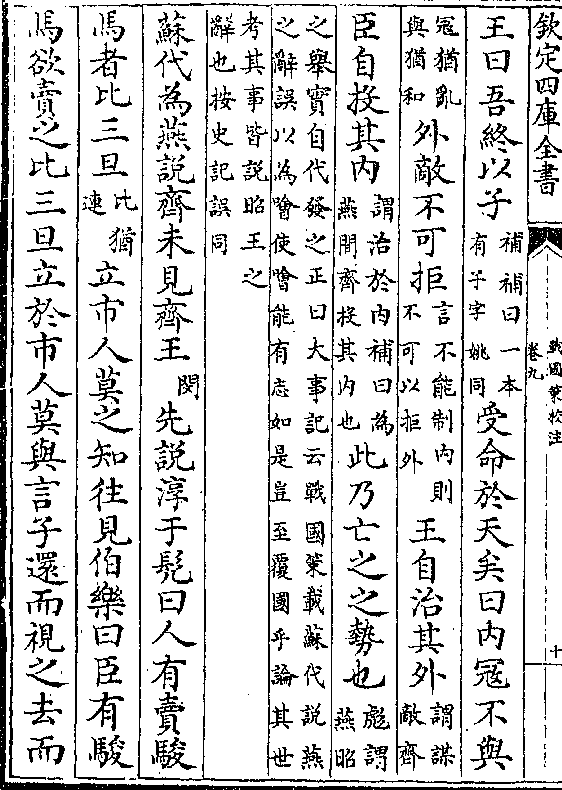 欽定四庫全書
戰國策校注
卷九
十
王曰吾終以子補補曰一本有子字姚同受命於天矣曰内冦不與
冦猶亂與猶和外敵不可拒言不能制内則不可以拒外王自治其外謂謀敵齊
臣自投其内謂治於内補曰為燕間齊投其内也此乃亡之之勢也彪謂燕昭
之舉實自代發之正曰大事記云戰國策載蘇代說燕
之辭誤以為噲使噲能有志如是豈至覆國乎論其世
考其事皆說昭王之
辭也按史記誤同
蘇代為燕說齊未見齊王閔先說淳于髡曰人有賣駿
馬者比三旦比猶連立市人莫之知往見伯樂曰臣有駿
馬欲賣之比三旦立於市人莫與言子還而視之去而